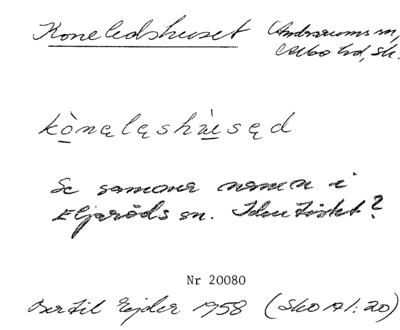 Koneledshuset Andrarums sn,
Albo hd, Sk.
kònąląshùsąd
Se samma namn i
Eljaröds sn. Identiskt?
Nr 20080
Bertil Ejder 1958 (Sko A1:20)